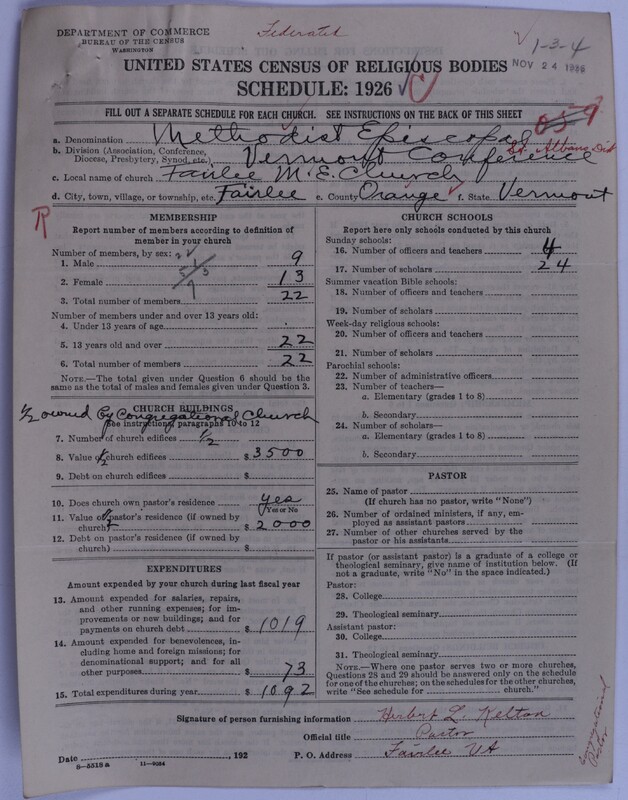 DEPARTMENT OF COMMERCE
BUREAU OF THE CENSUS
WASHINGTON
Federated
1-3-4
NOV 24 1926
UNITED STATES CENSUS OF RELIGIOUS BODIES
SCHEDULE: 1926
FILL OUT A SEPARATE SCHEDULE FOR EACH CHURCH. SEE INSTRUCTIONS ON THE BACK OF THIS SHEET
a. Denomination Methodist Episcopal
b. Division (Association, Conference, Diocese, Presbytery, Synod, etc.) Vermont Conference St. Albans Dist
c. Local name of church Fairlee M. E. Church
d. City, town, village, or township, etc. Fairlee e. County Orange f. State Vermont
MEMBERSHIP
Report number of members according to definition of
member in your church
Number of members, by sex:
1. Male 9
2. Female 13
3. Total number of members 22
Number of members under and over 13 years old:
4. Under 13 years of age
5. 13 years old and over 22
6. Total number of members 22
NOTE.—The total given under Question 6 should be
the same as the total of males and females given under Question 3.
CHURCH BUILDINGS
1/2 owned by Congregational Church
See instructions, paragraphs 10 to 12
7. Number of church edifices 1/2
8. Value of 1/2 church edifices $3500
9. Debt on church edifices $
10. Does church own pastor's residence yes
Yes or No
11. Value of 1/2 pastor's residence (if owned by
church) $2000
12. Debt on pastor's residence (if owned by
church) $
EXPENDITURES
Amount expended by your church during last fiscal year
13. Amount expended for salaries, repairs,
and other running expenses; for im-
provements or new buildings; and for
payments on church debt $1019
14. Amount expended for benevolences, in-
cluding home and foreign missions; for
denominational support; and for all
other purposes $73
15. Total expenditures during year $1092
CHURCH SCHOOLS
Report here only schools conducted by this church
Sunday schools:
16. Number of officers and teachers 4
17. Number of scholars 24
Summer vacation Bible schools:
18. Number of officers and teachers
19. Number of scholars
Week-day religious schools:
20. Number of officers and teachers
21. Number of scholars
Parochial schools:
22. Number of administrative officers
23. Number of teachers—
a. Elementary (grades 1 to 8)
b. Secondary
24. Number of scholars—
a. Elementary (grades 1 to 8)
b. Secondary
PASTOR
25. Name of pastor
(If church has no pastor, write "None")
26. Number of ordained ministers, if any, em-
ployed as assistant pastors
27. Number of other churches served by the
pastor or his assistants
If pastor (or assistant pastor) is a graduate of a college or
theological seminary, give name of institution below. (If
not a graduate, write "No" in the space indicated.)
Pastor:
28. College
29. Theological seminary
Assistant pastor:
30. College
31. Theological seminary
NOTE.—Where one pastor serves two or more churches,
Questions 28 and 29 should be answered only on the schedule
for one of the churches; on the schedules for the other churches,
write "See schedule for church."
Signature of person furnishing information Herbert L. Kelton
Official title Pastor
Date , 192 P. O. Address Fairlee Vt
8-5518 a 11-9084
Congregational
Pastor